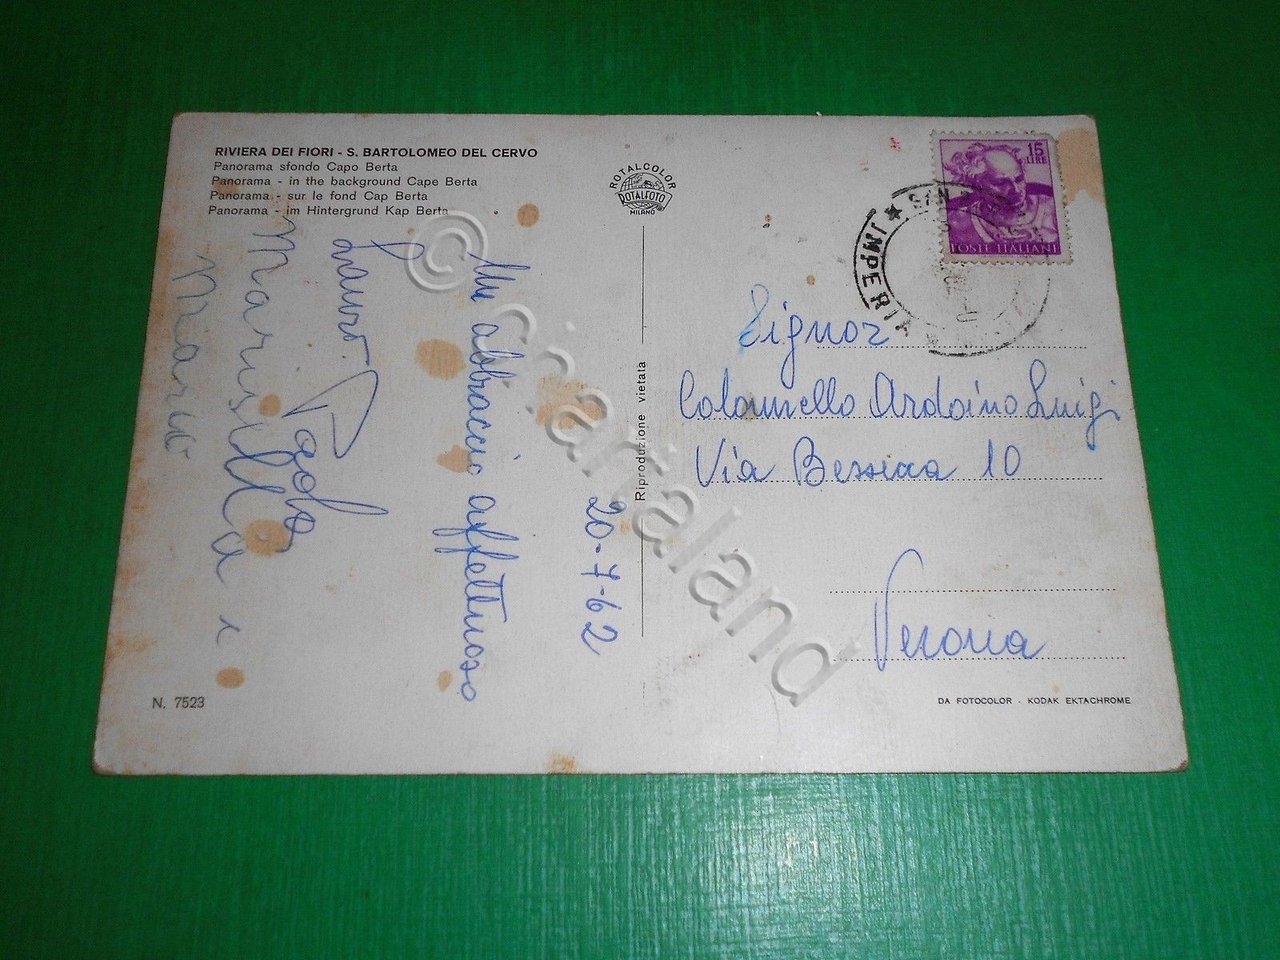 RIVIERA DEI FIORI - S. BARTOLOMEO DEL CERVO
Panorama sfondo Capo Berta
Panorama - in the background Cape Berta
Panorama - sur le fond Cap Berta
Panorama - im Hintergrund Kap Berta
ROTALCOLOR
ROTALFOTO
MILANO
15
LIRE
POSTE ITALIANE
SAN
★ IMPERIA
20-7-62
Un abbraccio affettuoso
Paolo
Marisella e
Marco
Riproduzione vietata
Signor
Ardoino Luigi
Via 10
Verona
N. 7523
DA FOTOCOLOR - KODAK EKTACHROME
© cartaland